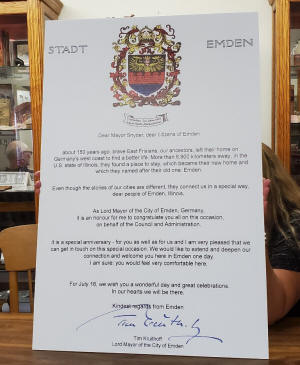 STADT EMDEN
Dear Mayor Snyder, dear citizens of Emden
about 150 years ago, brave East Frisians, our ancestors, left their home on
Germany's west coast to find a better life. More than 6,800 kilometers away, in the
U.S. state of Illinois, they found a place to stay, which became their new home and
which they named after their old one: Emden.
Even though the stories of our cities are different, they connect us in a special way,
dear people of Emden, Illinois.
As Lord Mayor of the City of Emden, Germany,
it is an honour for me to congratulate you all on this occasion,
on behalf of the Council and Administration.
It is a special anniversary - for you as well as for us and I am very pleased that we
can get in touch on this special occasion. We would like to extend and deepen our
connection and welcome you here in Emden one day.
I am sure: you will feel very comfortable here.
For July 16, we wish you a wonderful day and great celebrations.
In our hearts we will be there.
Kindest regards from Emden
Tim Kruithoff
Lord Mayor of the City of Emden